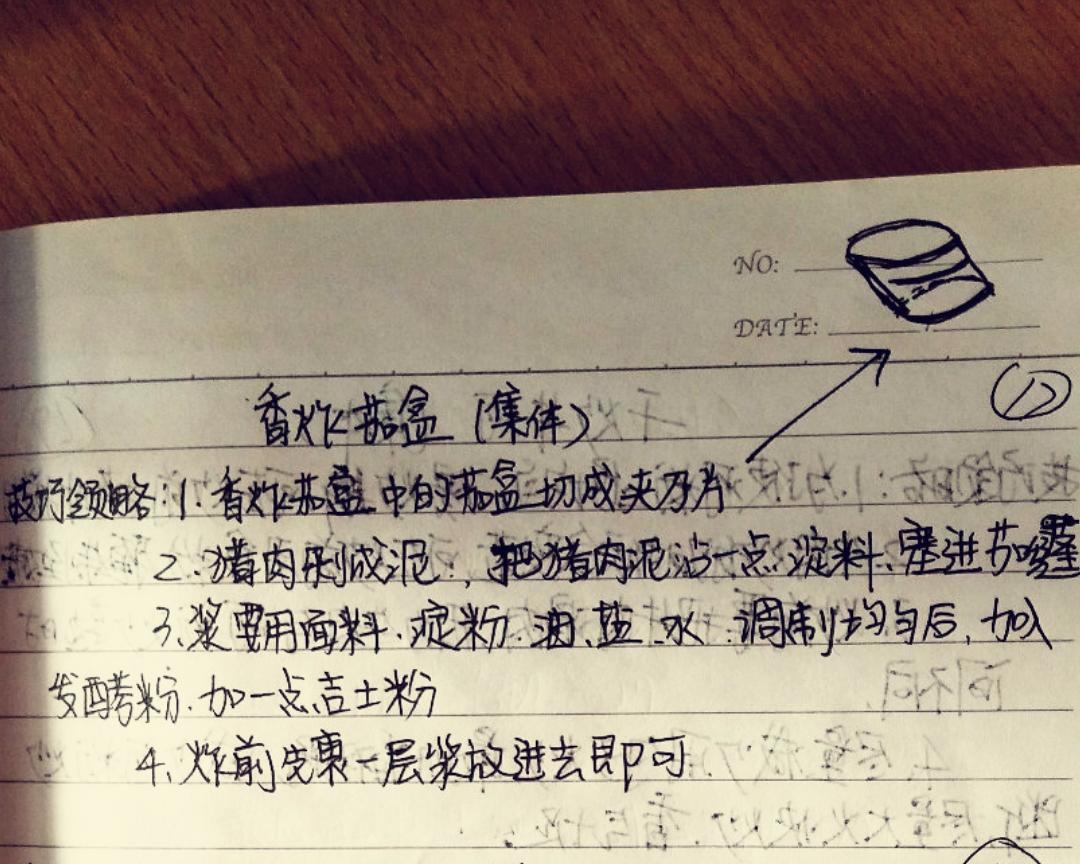 NO:
DATE:
①
香炸茄盒（集体）
技巧领略：1.香炸茄盒中的茄盒切成夹刀片
2.猪肉剁成泥，把猪肉泥沾一点淀料.塞进茄
3.浆要用面料.淀粉.油.盐.水.调制均匀后，加入
发酵粉.加一点吉士粉
4.炸前先裹一层浆放进去即可